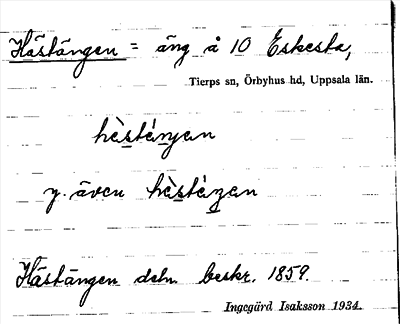 Hästängen = äng å 10 Eskesta,
Tierps sn, Örbyhus hd, Uppsala län.
hὲsteŋen
y. även
Hästängen deln. beskr. 1859.
Ingegärd Isaksson 1934.